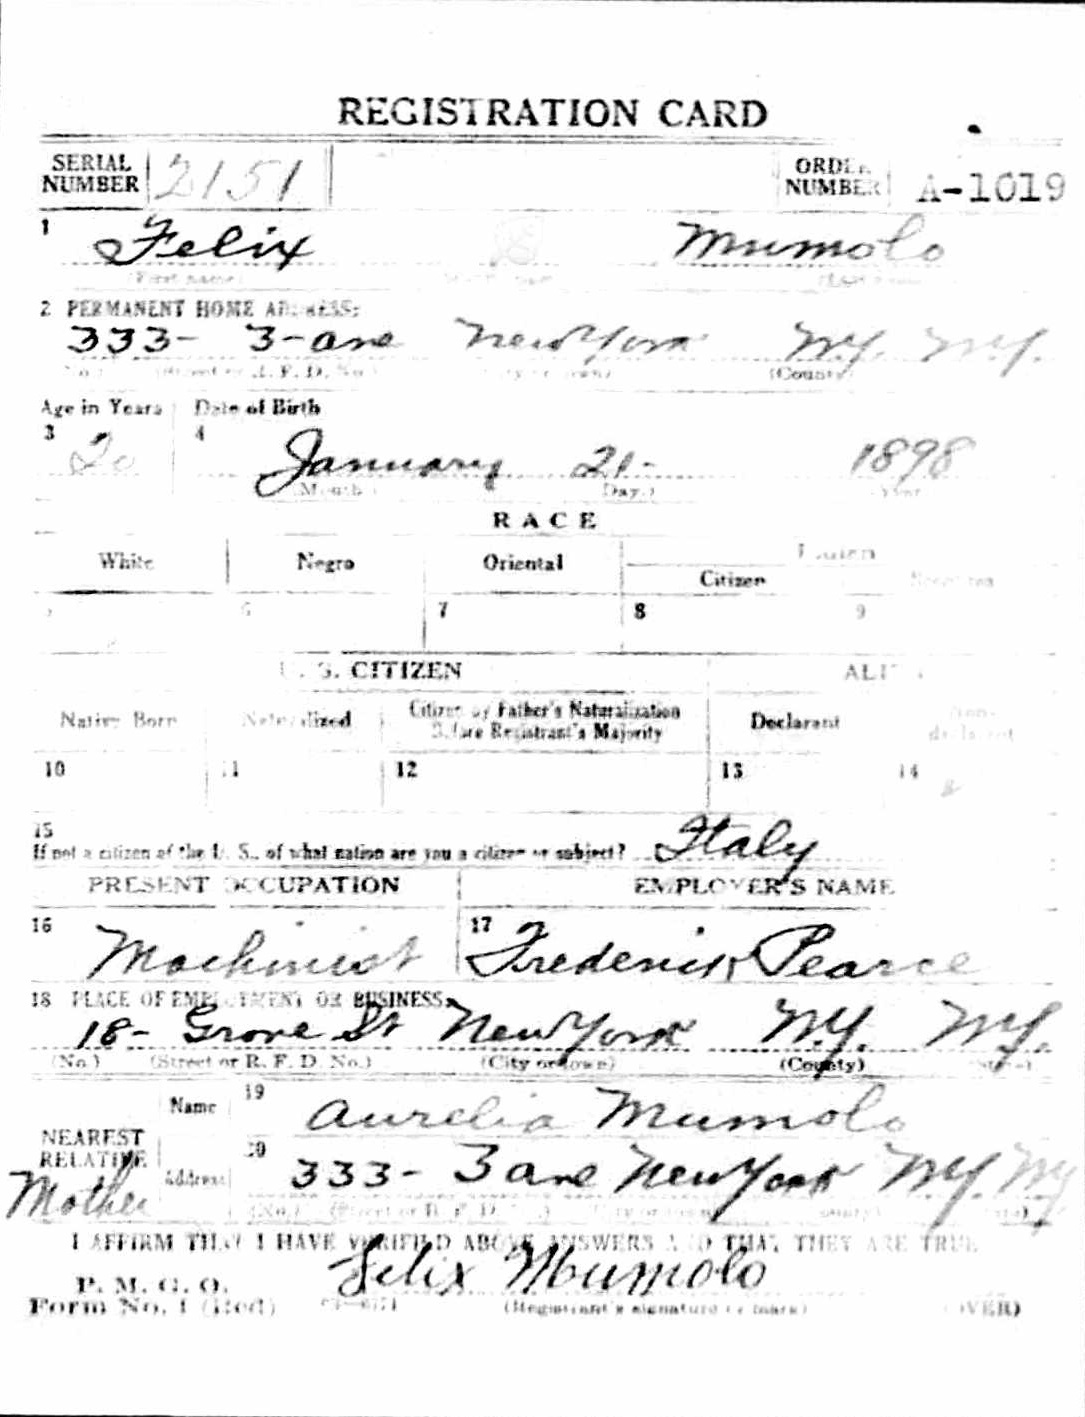 REGISTRATION CARD
SERIAL NUMBER 2151 ORDER NUMBER A-1019
1 Felix Mumolo
(First name)
2 PERMANENT HOME ADDRESS:
333- 3-ave New York N.Y. N.Y.
(No.) (Street or R. F. D. No.) (City or town) (County)
Age in Years Date of Birth
3 20 4 January 21- 1898
(Month) (Day) (Year)
RACE
White Negro Oriental
Citizen
5 6 7 8 9
U. S. CITIZEN ALIEN
Native Born Naturalized Citizen by Father's Naturalization Before Registrant's Majority Declarant Non-declarant
10 11 12 13 14
15
If not a citizen of the U. S., of what nation are you a citizen or subject? Italy
PRESENT OCCUPATION EMPLOYER'S NAME
16 Machinist 17 Frederick Pearce
18 PLACE OF EMPLOYMENT OR BUSINESS
18- Grove St New York N.Y. N.Y.
(No.) (Street or R. F. D. No.) (City or town) (County) (State)
NEAREST RELATIVE Name 19 Aurelia Mumolo
Mother Address 20 333- 3 ave New York N.Y. N.Y.
(No.) (Street or R. F. D. No.) (City or town) (County) (State)
I AFFIRM THAT I HAVE VERIFIED ABOVE ANSWERS AND THAT THEY ARE TRUE
P. M. G. O.
Form No. 1 (Red) Felix Mumolo
(Registrant's signature or mark) (OVER)